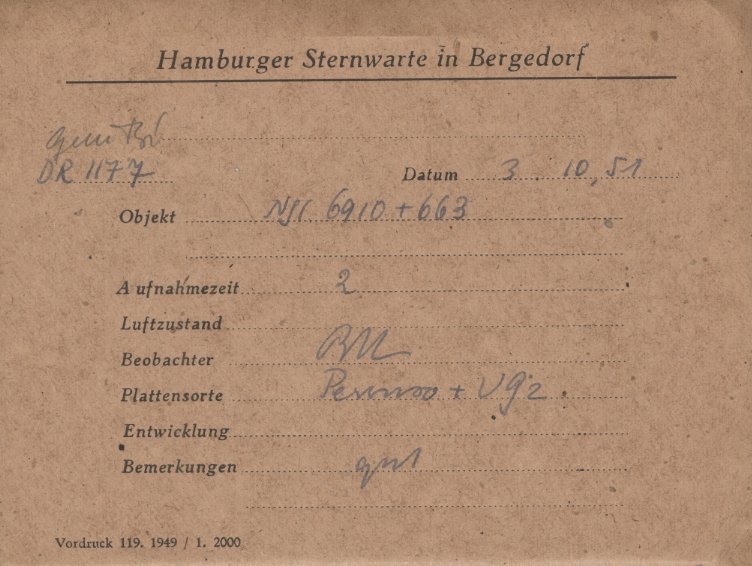 Hamburger Sternwarte in Bergedorf
DR 1177
Datum 3. 10, 51
Objekt NGC 6910 + 663
Aufnahmezeit 2
Luftzustand
Beobachter
Plattensorte + U92
Entwicklung
Bemerkungen gut
Vordruck 119. 1949 / 1. 2000